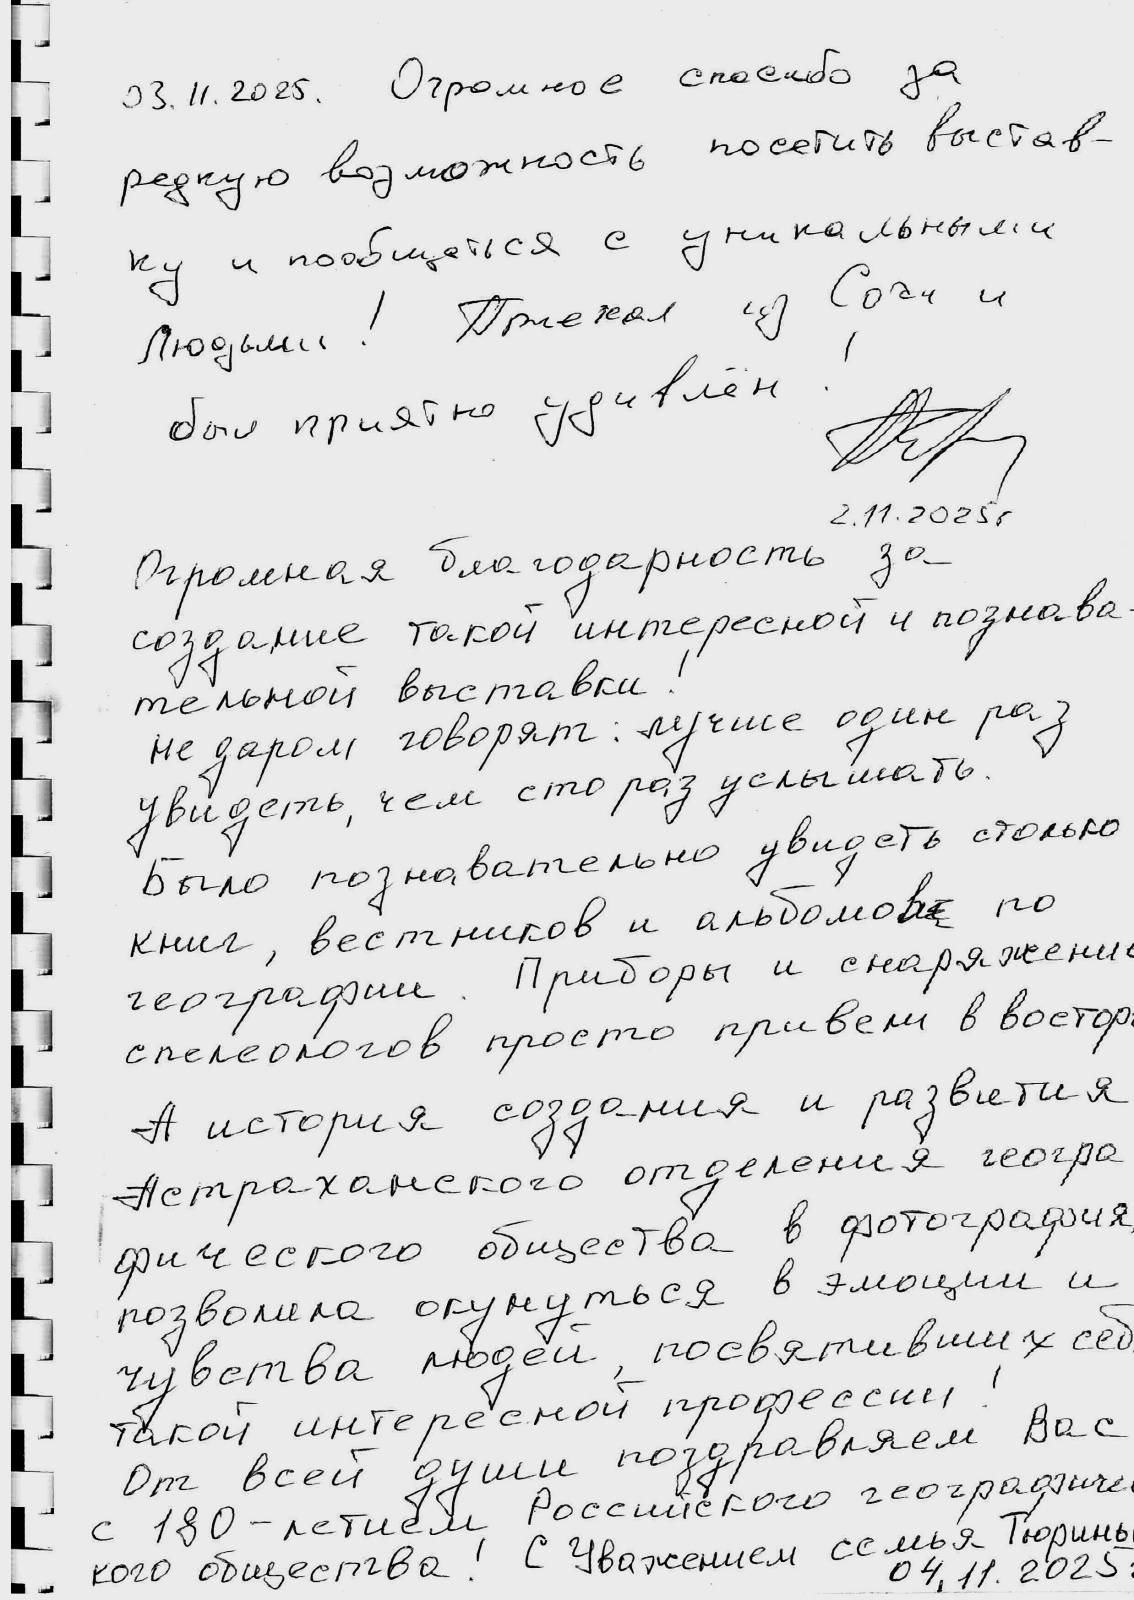 03.11.2025. Огромное спасибо за
редкую возможность посетить выстав-
ку и пообщаться с уникальными
Людьми! Приехал из Сочи и
был приятно удивлён!
2.11.2025г
Огромная благодарность за
создание такой интересной и познава-
тельной выставки!
Не даром говорят: лучше один раз
увидеть, чем сто раз услышать.
Было познавательно увидеть столько
книг, вестников и альбомов по
географии. Приборы и снаряжение
спелеологов просто привели в восторг
А история создания и развития
Астраханского отделения геогра
фического общества в фотография,
позволила окунуться в эмоции и
чувства людей, посвятивших себ
такой интересной профессии!
От всей души поздравляем Вас
с 180-летием Российского географичес
кого общества! С Уважением семья Тюрины
04.11.2025г